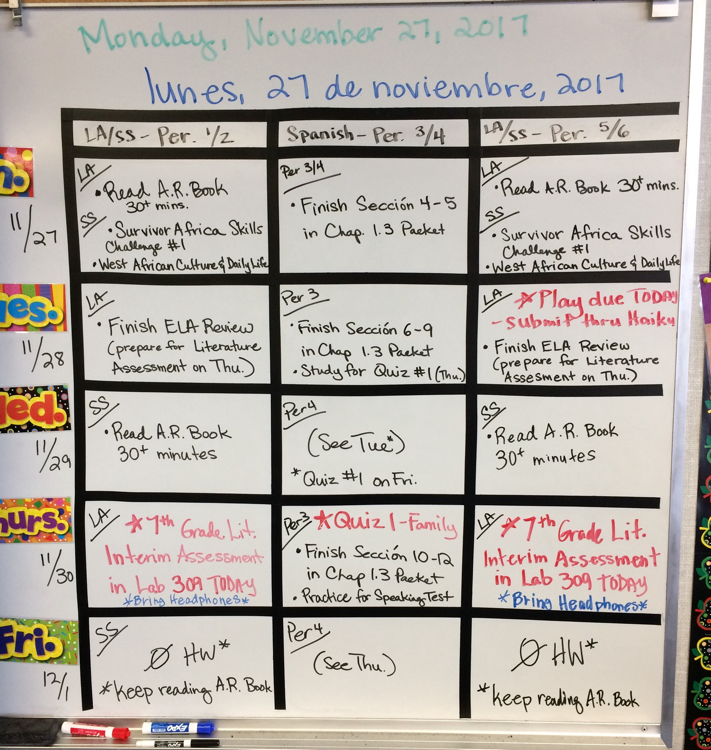 Monday, November 27, 2017
lunes, 27 de noviembre, 2017
LA/SS - Per. 1/2
Spanish - Per. 3/4
LA/SS - Per. 5/6
11/27
LA
• Read A.R. Book
30+ mins.
SS
• Survivor Africa Skills
Challenge #1
• West African Culture & Daily Life
Per 3/4
• Finish Sección 4-5
in Chap. 1.3 Packet
LA
• Read A.R. Book 30+ mins.
SS
• Survivor Africa Skills
Challenge #1
• West African Culture & Daily Life
11/28
LA
• Finish ELA Review
(prepare for Literature
Assessment on Thu.)
Per 3
• Finish Sección 6-9
in Chap 1.3 Packet
• Study for Quiz #1 (Thu.)
LA
* Play due TODAY
- submit thru Haiku
• Finish ELA Review
(prepare for Literature
Assesment on Thu.)
11/29
SS
• Read A.R. Book
30+ minutes
Per 4
(See Tue*)
*Quiz #1 on Fri.
SS
• Read A.R. Book
30+ minutes
hurs.
11/30
LA
* 7th Grade Lit.
Interim Assessment
in Lab 309 TODAY
*Bring Headphones*
Per 3
* Quiz 1 - Family
• Finish Sección 10-12
in Chap 1.3 Packet
• Practice for Speaking Test
LA
* 7th Grade Lit.
Interim Assessment
in Lab 309 TODAY
*Bring Headphones*
Fri.
12/1
SS
Ø HW*
*keep reading A.R. Book
Per 4
(See Thu.)
Ø HW*
*keep reading A.R. Book
EXPO